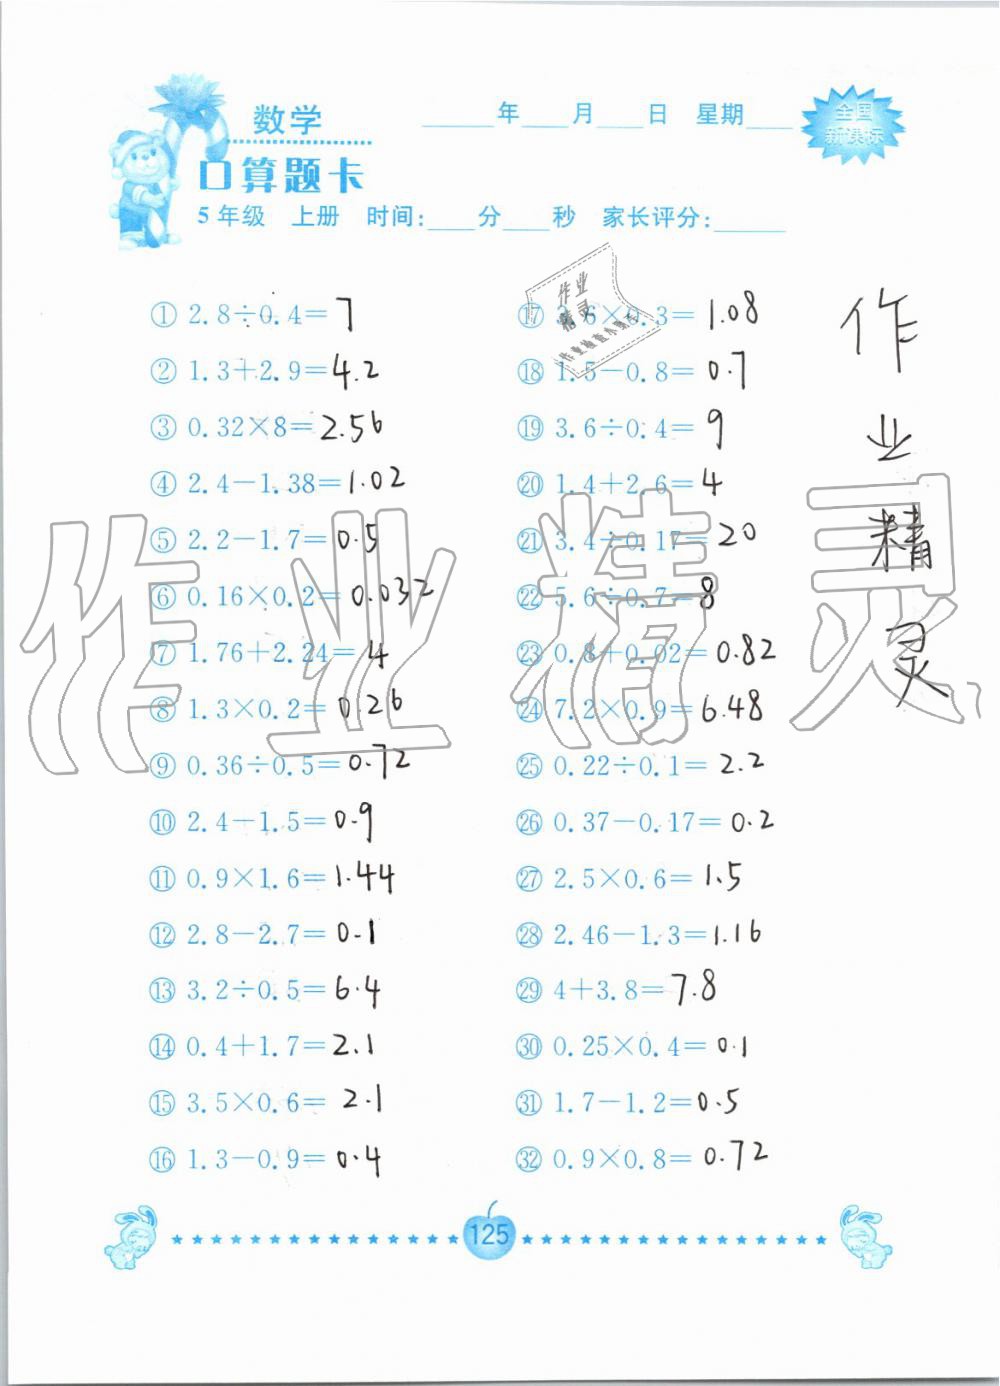 数学
____年____月____日 星期____
全国
新课标
口算题卡
5年级 上册 时间:____分____秒 家长评分:______
① 2.8÷0.4=7
② 1.3+2.9=4.2
③ 0.32×8=2.56
④ 2.4-1.38=1.02
⑤ 2.2-1.7=0.5
⑥ 0.16×0.2=0.032
⑦ 1.76+2.24=4
⑧ 1.3×0.2=0.26
⑨ 0.36÷0.5=0.72
⑩ 2.4-1.5=0.9
⑪ 0.9×1.6=1.44
⑫ 2.8-2.7=0.1
⑬ 3.2÷0.5=6.4
⑭ 0.4+1.7=2.1
⑮ 3.5×0.6=2.1
⑯ 1.3-0.9=0.4
⑰ 3.6×0.3=1.08
⑱ 1.5-0.8=0.7
⑲ 3.6÷0.4=9
⑳ 1.4+2.6=4
㉑ 3.4÷0.17=20
㉒ 5.6÷0.7=8
㉓ 0.8+0.02=0.82
㉔ 7.2×0.9=6.48
㉕ 0.22÷0.1=2.2
㉖ 0.37-0.17=0.2
㉗ 2.5×0.6=1.5
㉘ 2.46-1.3=1.16
㉙ 4+3.8=7.8
㉚ 0.25×0.4=0.1
㉛ 1.7-1.2=0.5
㉜ 0.9×0.8=0.72
作
业
精
灵
作业
精灵
作业精灵
125